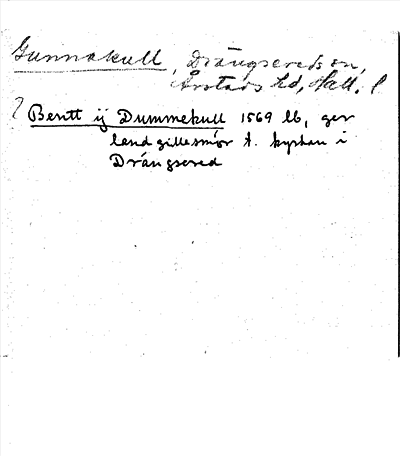 Gunnakull, Drängsereds sn,
Årstads hd, Hall. l
? Bentt ij Dummekull 1569 lb, ger
land gillesmör t. kyrkan i
Drängsered